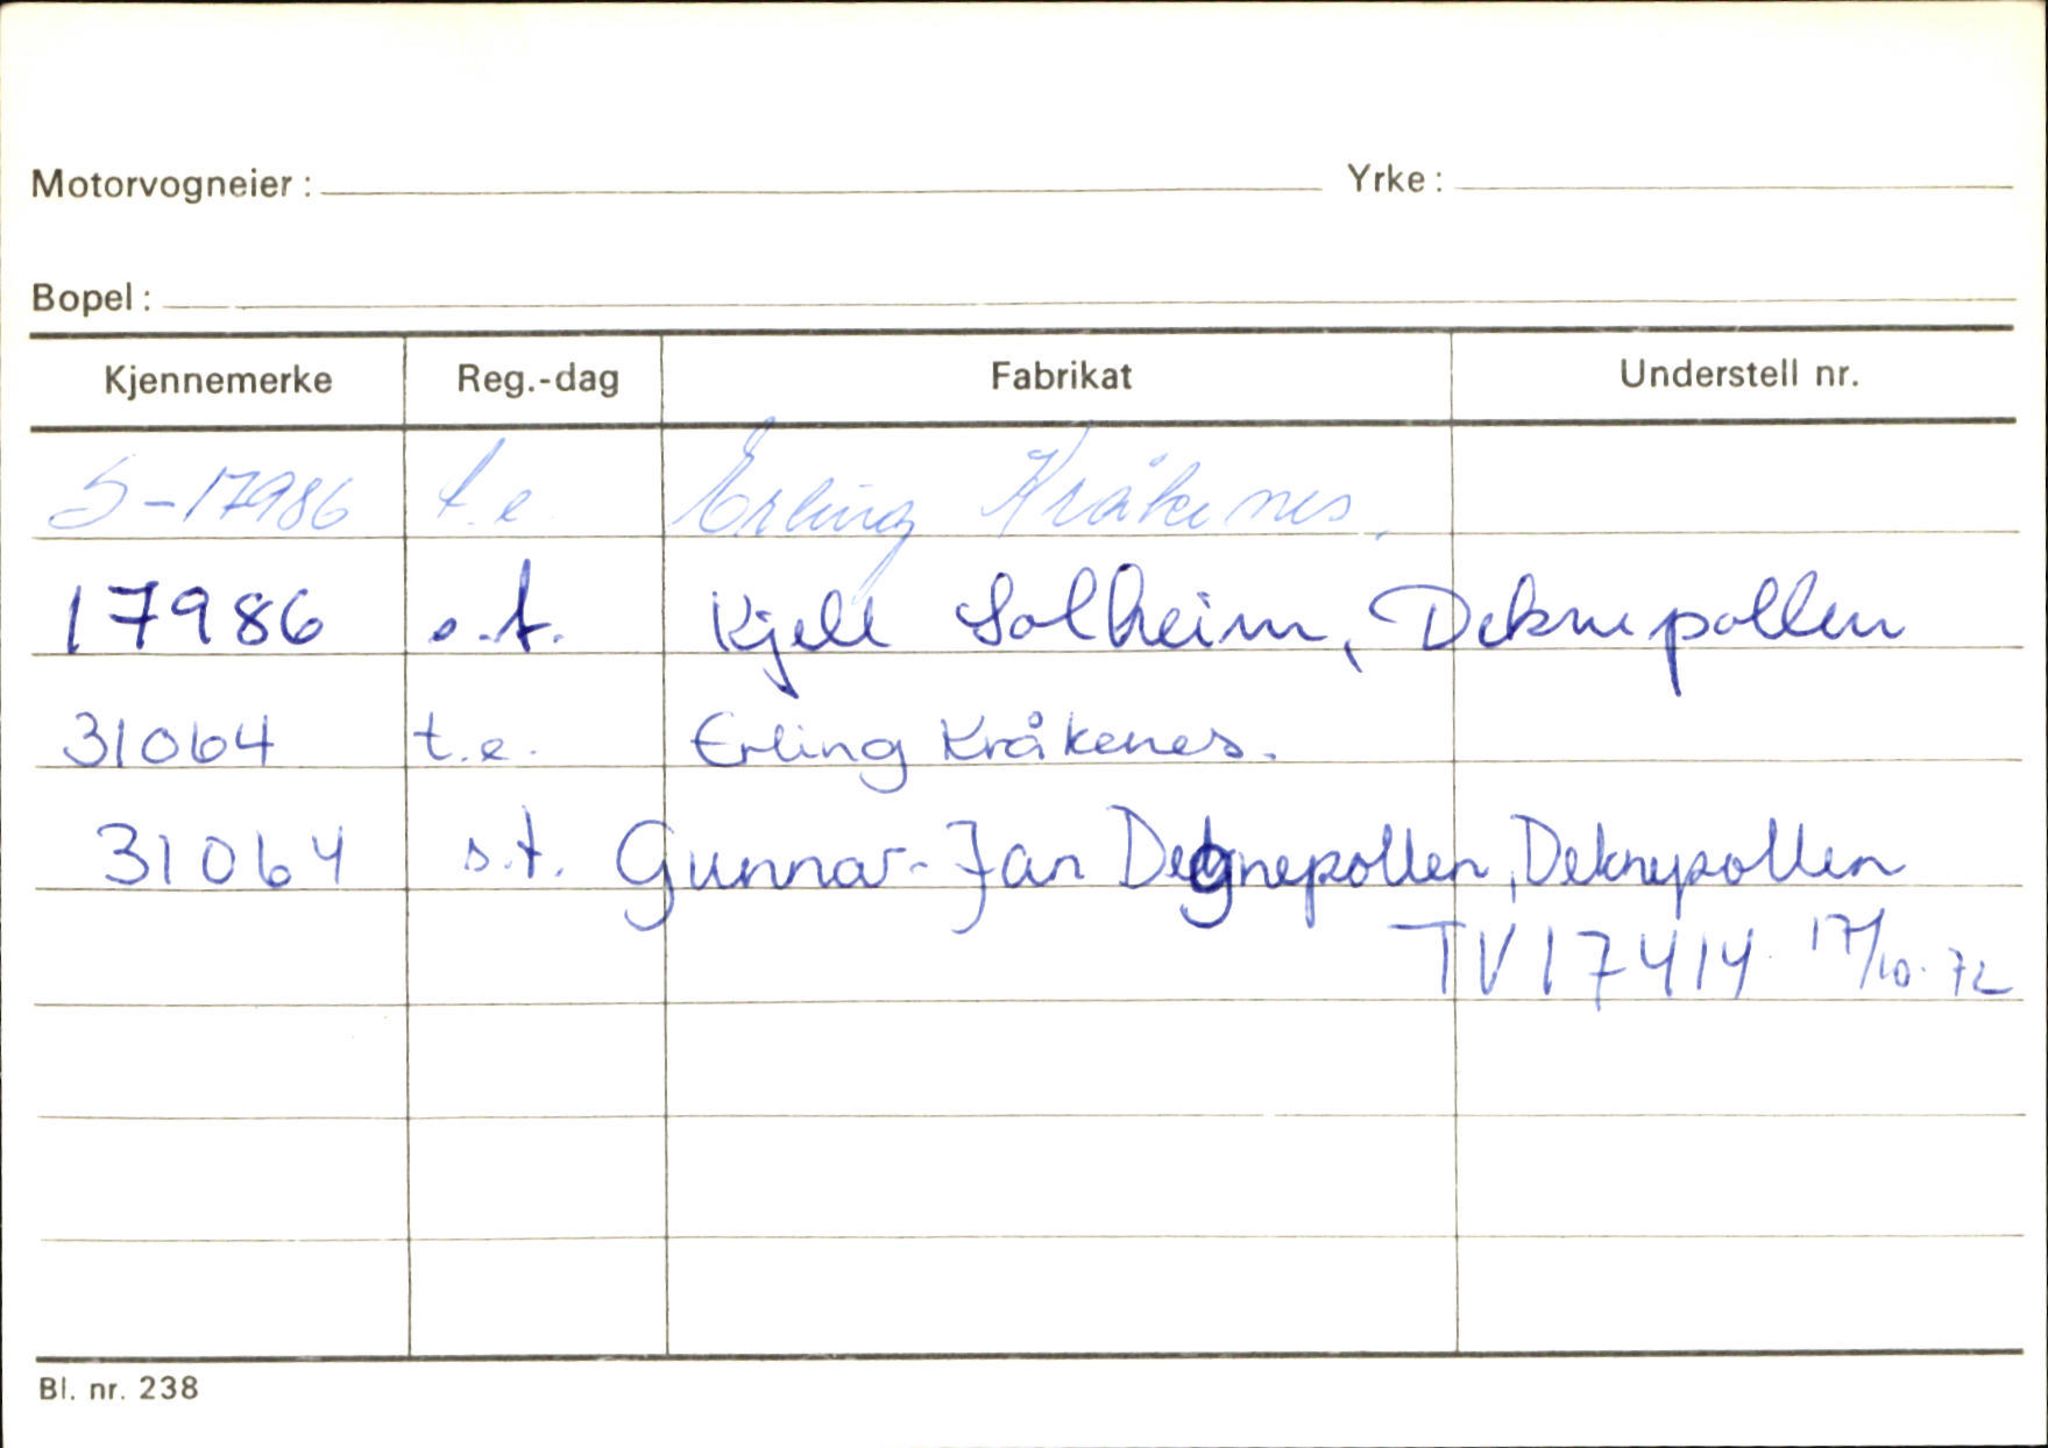 Motorvogneier: Yrke:
Bopel:
Kjennemerke Reg.-dag Fabrikat Understell nr.
S-17986 t.e. Erling Kråkenes.
17986 s.t. Kjell Solheim, Deknepollen
31064 t.e. Erling Kråkenes.
31064 s.t. Gunnar-Jan Degnepollen, Deknepollen
TV17414 17/10.72
Bl. nr. 238